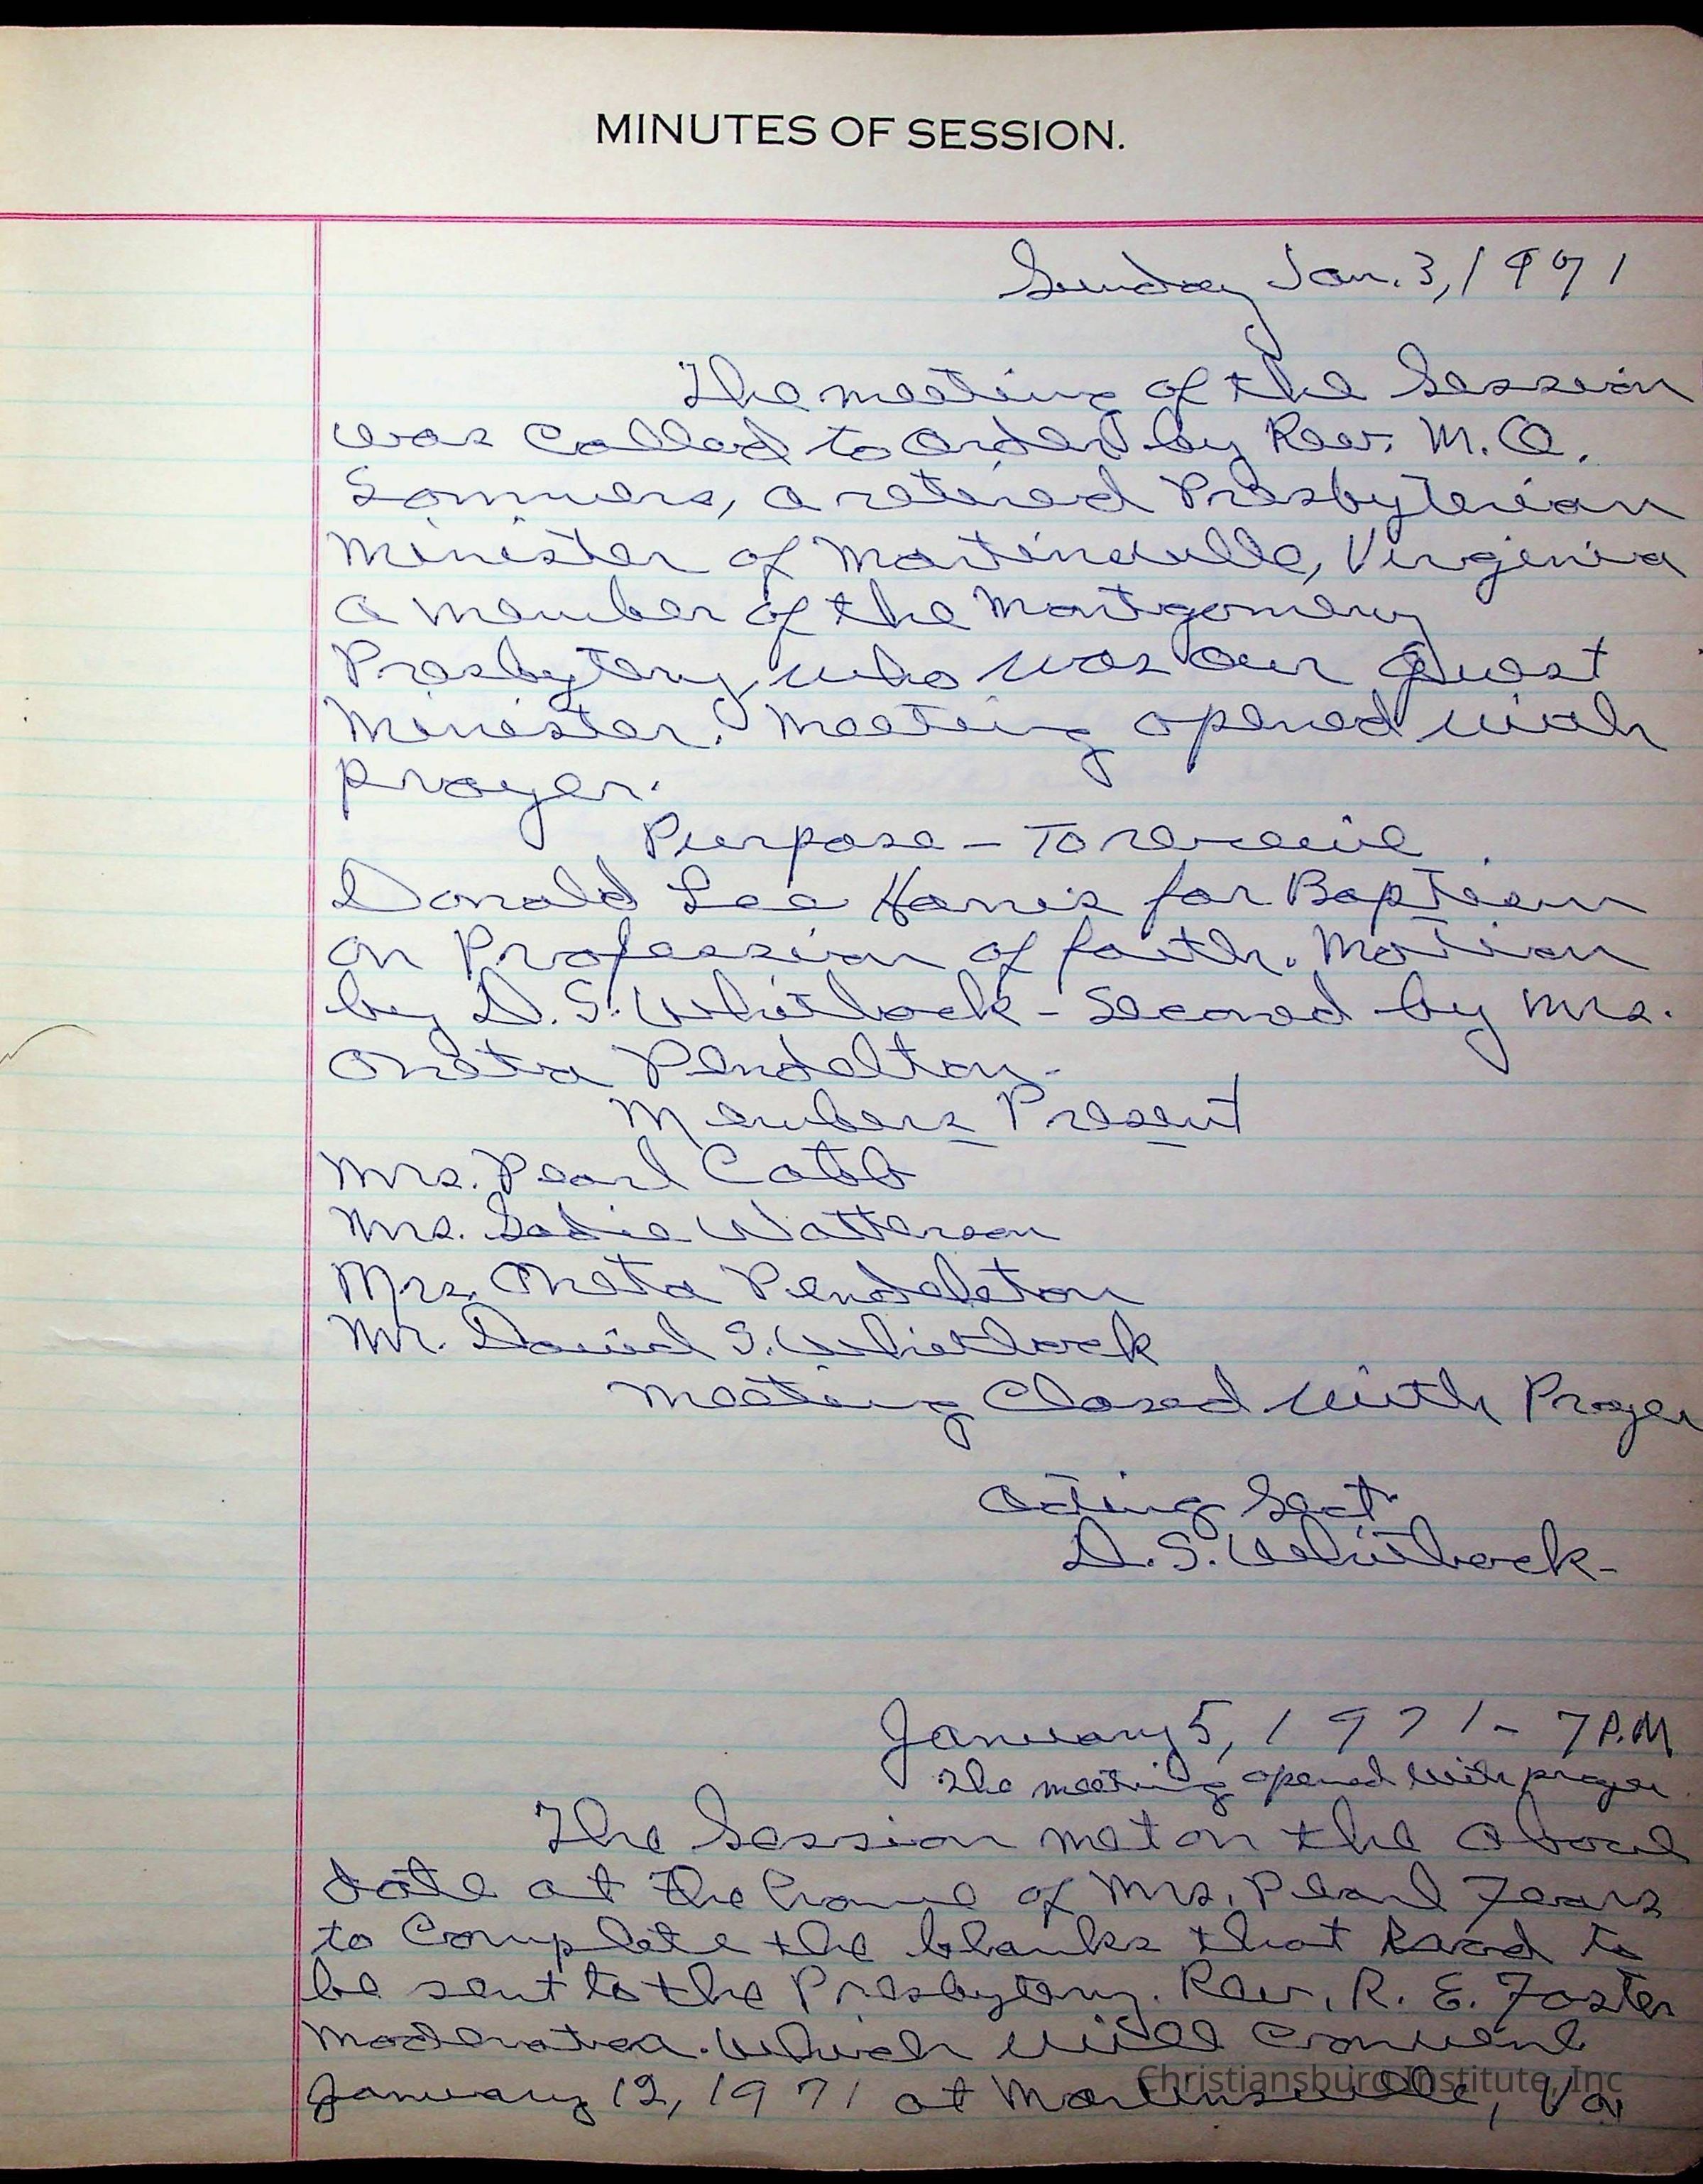 MINUTES OF SESSION.
Sunday Jan. 3, 1971
The meeting of the Session
was Called to Order by Rev. M. O.
Sommers, a retired Presbyterian
Minister of Martinsville, Virginia
a member of the Montgomery
Presbytery, who was our Guest
Minister. Meeting opened with
prayer.
Purpose - To receive
Donald Lee Harris for Baptism
on Profession of faith. Motion
by D. S. Whitlock - Second by Mrs.
Oneta Pendelton.
Members Present
Mrs. Pearl Cobb
Mrs. Sadie Watterson
Mrs. Oneta Pendeleton
Mr. David S. Whitlock
Meeting Closed with Prayer
Acting Sect.
D. S. Whitlock -
January 5, 1971 - 7 P.M
The meeting opened with prayer
The Session met on the above
date at the home of Mrs. Pearl Fears
to Complete the blanks that had to
be sent to the Presbytery. Rev. R. E. Foster
Moderator. Which will convene
January 12, 1971 at Martinsville, Va
Christiansburg Institute, Inc